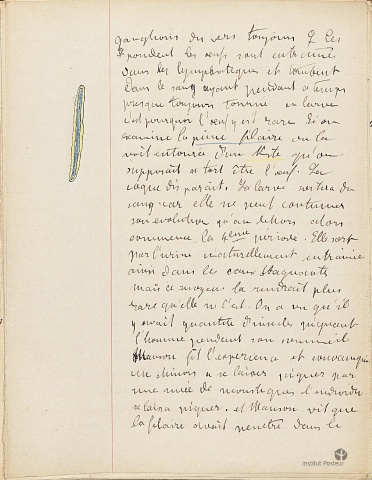 ganglions du vers toujours ♀ Les
pondent les œufs sont entraînés
dans les lymphatiques et tombent
dans le sang ayant pendant ce temps
presque toujours tourné en larve
c'est pourquoi l'œuf y est rare si on
examine la jeune filaire on la
voit entourée d'un kiste qu'on
supposait à tort être l'œuf. La
coque disparaît. La larve restera du
sang car elle ne peut continuer
son évolution qu'au dehors alors
commence la 4ème période. Elle sort
par l'urine naturellement entrainée
ainsi dans les eaux stagnantes
mais ce moyen la rendrait plus
rare qu'elle n'est. On a vu qu'il
y avait quantité d'insectes piquant
l'homme pendant son sommeil
Manson fit l'expérience et convainquit
un chinois à se laisser piquer par
une nuée de moustiques l'individu
se laissa piquer. et Manson vit que
la filaire avait pénétré dans le
Institut Pasteur